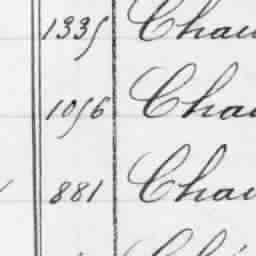 1335 Chau
1056 Chau
881 Chau